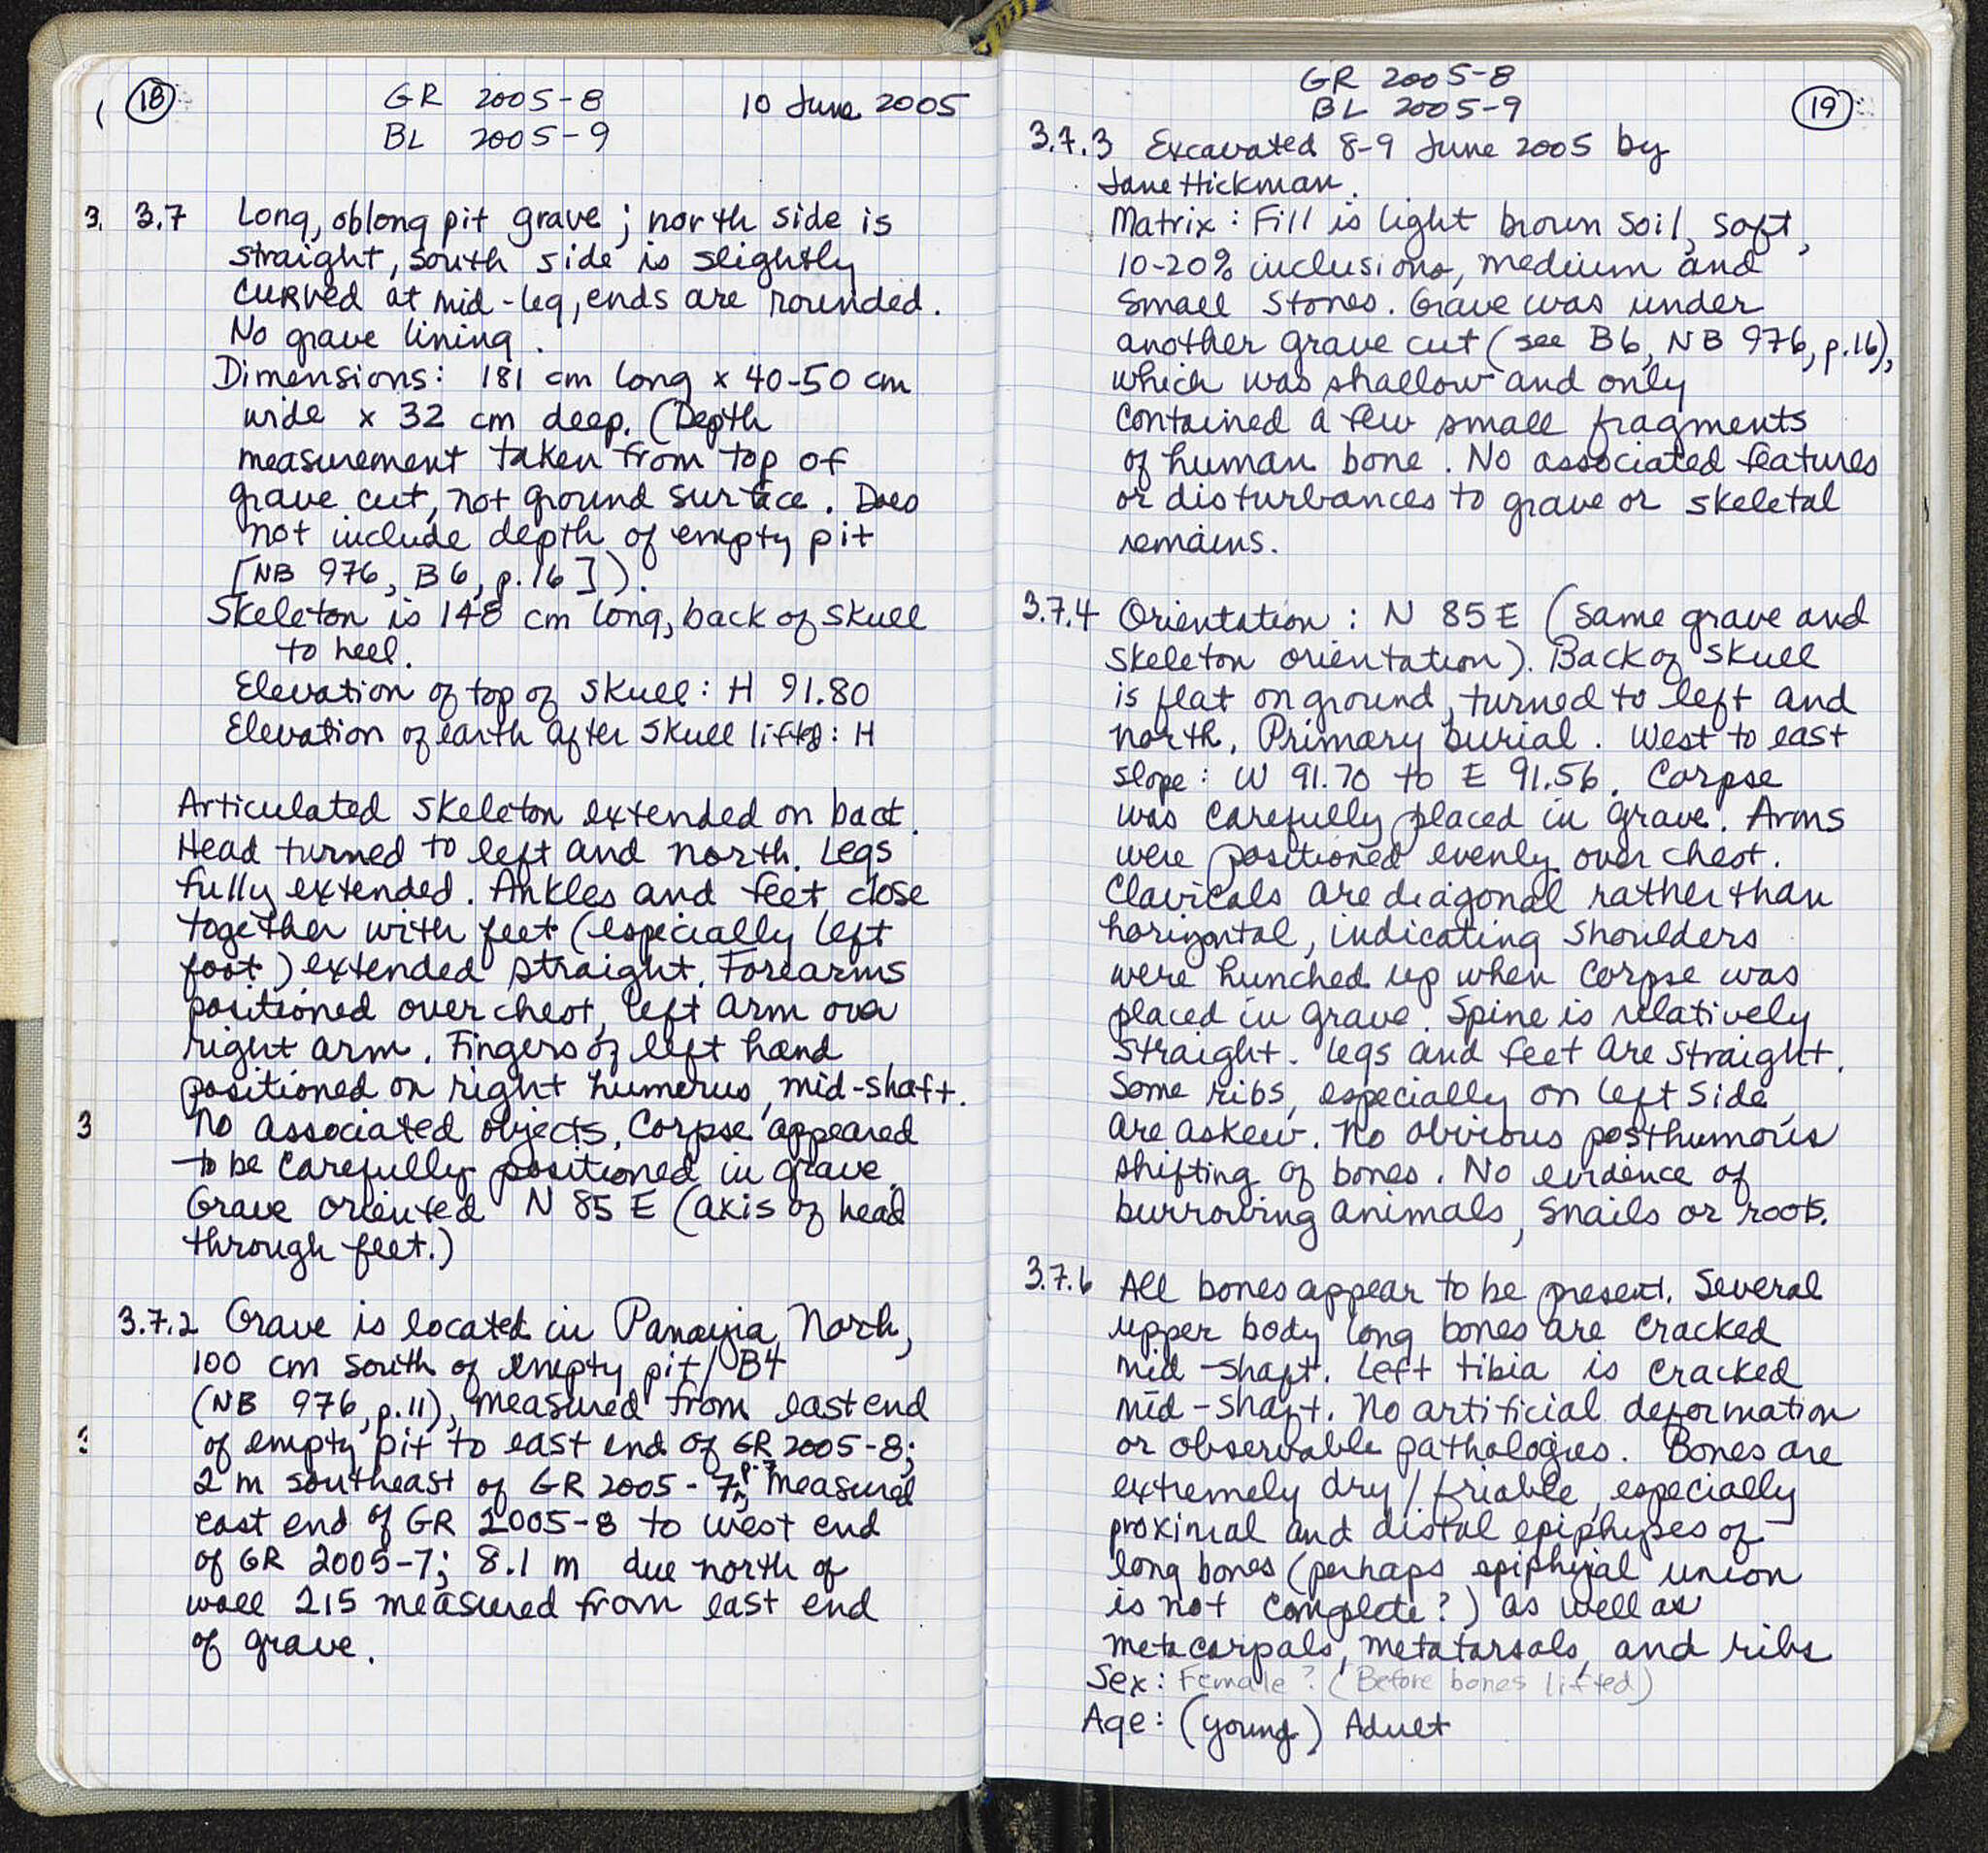 18 GR 2005-8 10 June 2005
BL 2005-9
3.7 Long, oblong pit grave; north side is
straight, south side is slightly
curved at mid-leg, ends are rounded.
No grave lining.
Dimensions: 181 cm long x 40-50 cm
wide x 32 cm deep. (Depth
measurement taken from top of
grave cut, not ground surface. Does
not include depth of empty pit
[NB 976, B6, p.16]).
Skeleton is 148 cm long, back of skull
to heel.
Elevation of top of skull: H 91.80
Elevation of earth after skull lifted: H
Articulated skeleton extended on back.
Head turned to left and north. Legs
fully extended. Ankles and feet close
together with feet (especially left
foot) extended straight. Forearms
positioned over chest, left arm over
right arm. Fingers of left hand
positioned on right humerus, mid-shaft.
No associated objects. Corpse appeared
to be carefully positioned in grave.
Grave oriented N 85 E (axis of head
through feet.)
3.7.2 Grave is located in Panayia North,
100 cm south of empty pit/B4
(NB 976, p.11), measured from east end
of empty pit to east end of GR 2005-8;
2 m southeast of GR 2005-7, p.7 measured
east end of GR 2005-8 to west end
of GR 2005-7; 8.1 m due north of
wall 215 measured from east end
of grave.
GR 2005-8
BL 2005-9 19
3.7.3 Excavated 8-9 June 2005 by
Jane Hickman.
Matrix: Fill is light brown soil, soft,
10-20% inclusions, medium and
small stones. Grave was under
another grave cut (see B6, NB 976, p.16),
which was shallow and only
contained a few small fragments
of human bone. No associated features
or disturbances to grave or skeletal
remains.
3.7.4 Orientation: N 85 E (same grave and
skeleton orientation). Back of skull
is flat on ground, turned to left and
north. Primary burial. West to east
slope: W 91.70 to E 91.56. Corpse
was carefully placed in grave. Arms
were positioned evenly over chest.
Clavicals are diagonal rather than
horizontal, indicating shoulders
were hunched up when corpse was
placed in grave. Spine is relatively
straight. Legs and feet are straight.
Some ribs, especially on left side,
are askew. No obvious posthumous
shifting of bones. No evidence of
burrowing animals, snails or roots.
3.7.6 All bones appear to be present. Several
upper body long bones are cracked
mid-shaft. Left tibia is cracked
mid-shaft. No artificial deformation
or observable pathologies. Bones are
extremely dry/friable, especially
proximal and distal epiphyses of
long bones (perhaps epiphyjal union
is not complete?) as well as
metacarpals, metatarsals, and ribs
Sex: Female? (Before bones lifted)
Age: (young) Adult